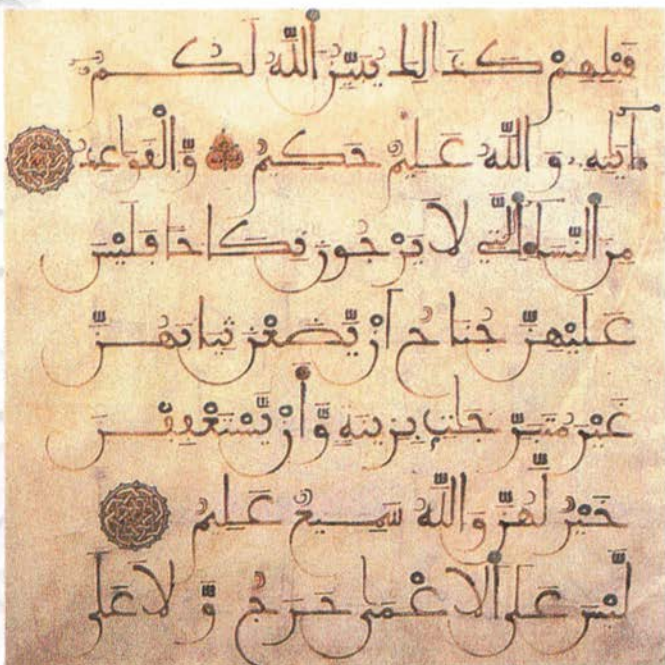 قَبْلِهِمْ كَذَٰلِكَ يُبَيِّنُ اُ۬للَّهُ لَكُمُۥٓ
ءَايَٰتِهِۦ وَاللَّهُ عَلِيمٌ حَكِيمٌ وَّالْقَوَٰعِدُ
مِنَ اَ۬لنِّسَآءِ اِ۬لَّٰتِي لَا يَرْجُونَ نِكَاحًا فَلَيْسَ
عَلَيْهِنَّ جُنَاحٌ أَنْ يَّضَعْنَ ثِيَابَهُنَّ
غَيْرَ مُتَبَرِّجَٰتِۭ بِزِينَةٍ وَّأَنْ يَّسْتَعْفِفْنَ
خَيْرٌ لَّهُنَّ وَاللَّهُ سَمِيعٌ عَلِيمٌ
لَّيْسَ عَلَى اَ۬لْأَعْمَىٰ حَرَجٌ وَّلَا عَلَى